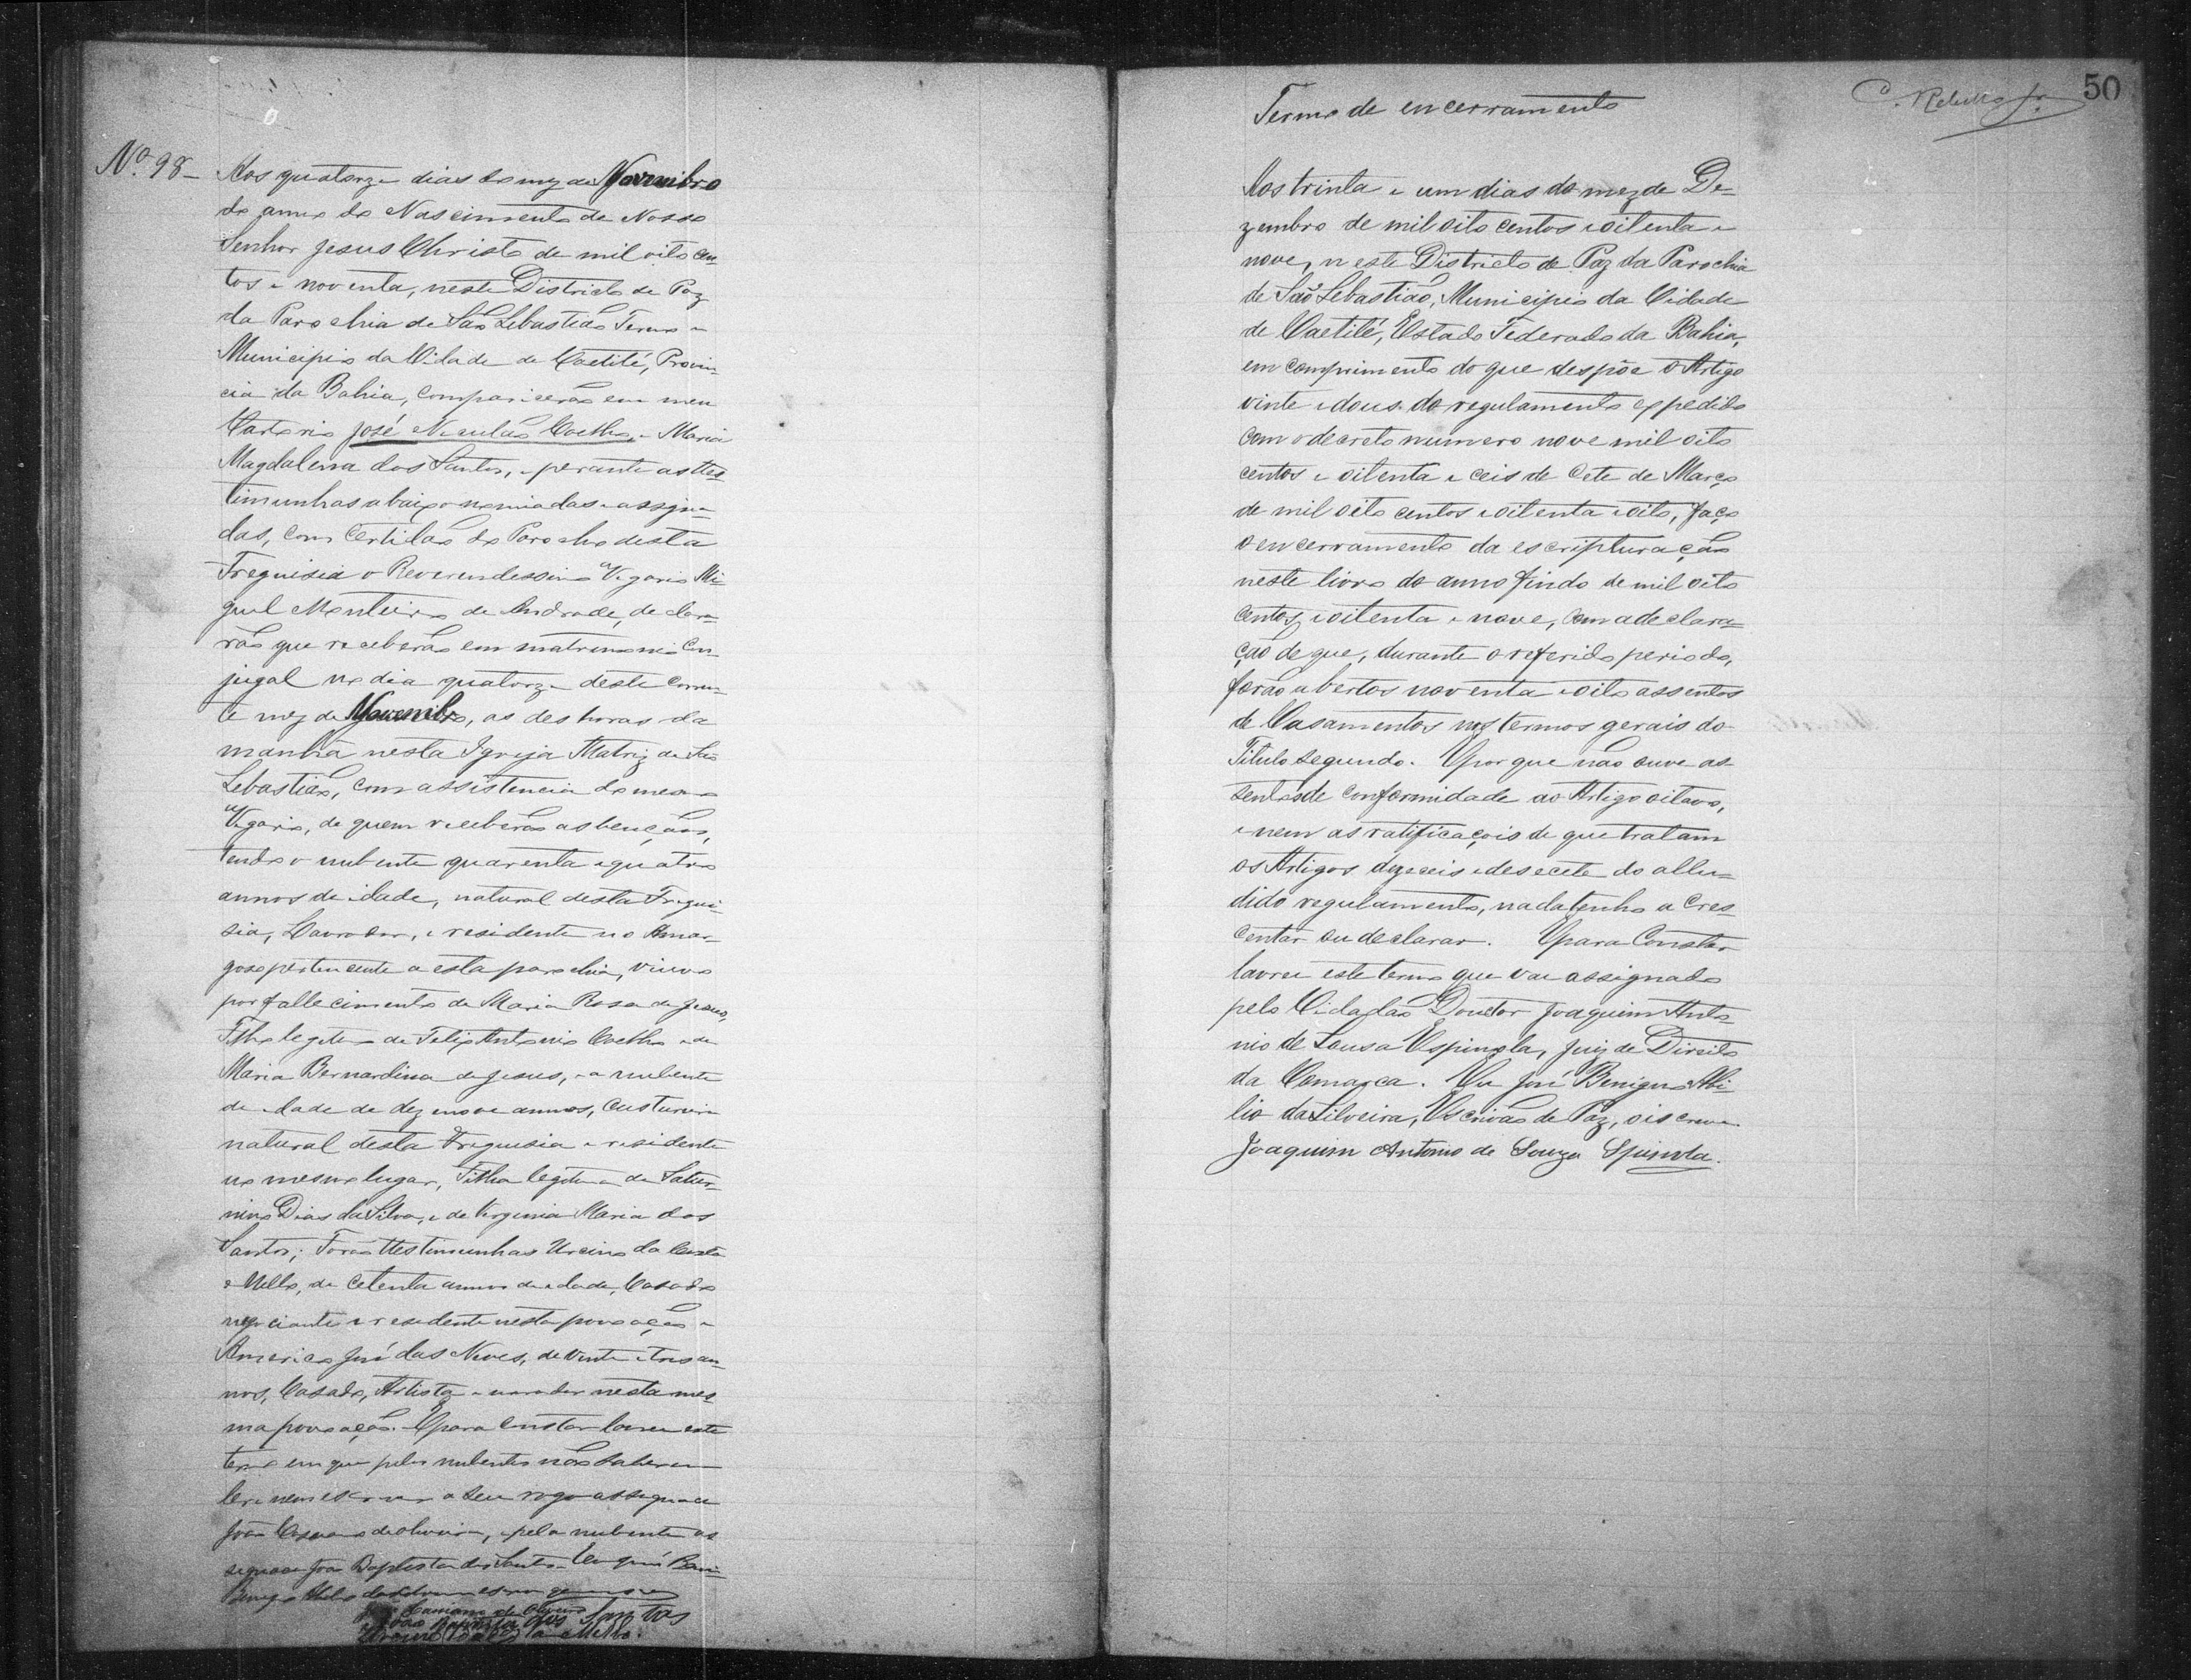 Nº 98- Aos quatorze dias do mez de Novembro
do anno do Nascimento de Nosso
Senhor Jesus Christo de mil oito cen
tos e noventa, neste Districto de Paz
da Parochia de São Sebastião Termo e
Municipio da Cidade de Caetité, Provin-
cia da Bahia, comparicerão em meu
Cartorio José Niculáo Coelho, e Maria
Magdalena dos Santos, e perante as tes
timunhas abaixo nomiadas e assigna-
das, com Certidão do Parocho desta
Freguisia o Reverendissimo Vigario Mi-
guel Monteiro de Andrade, declara-
rão que receberão em matrimonio Con-
jugal no dia quatorze deste Corren-
te mez de Novembro, as des horas da
manhã nesta Igreja Matriz de São
Sebastião, com assistencia do mesmo
Vigario, de quem receberão as bençãos,
tendo o nubente quarenta e quatro
annos de idade, natural desta Fregui-
sia, Lavrador, e residente no Amar-
goso pertencente a esta parochia, viuvo
por fallecimento de Maria Rosa de Jesus,
Filho legitimo de Felix Antonio Coelho e de
Maria Bernardina de Jesus, e a nubente
de idade de dezenove annos, Custureira
natural desta Freguisia e residente
no mesmo lugar, Filha legitima de Satur-
nino Dias da Silva, e de Virginia Maria dos
Santos; Forão Testimunhas Ursino da Costa
e Mello, de Cetenta annos de idade, Casado
negociante e residente nesta povoação e
Americo José das Neves, de vinte e tres an-
nos, Casado, Artista e morador nesta mes
ma povoação. E para constar lavrei este
termo em que pelos nubentes não saberem
ler e nem escrever a seu rogo assignou
João Cassiano de Oliveira, e pela nubente as
signou João Baptista dos Santos. Eu José
Benigno Abilio da Silveira
João Cassiano de Oliveira
João Baptista dos Santos
Ursino da Costa e Mello.
50
Termo de encerramento
Aos trinta e um dias do mez de De-
zembro de mil oito centos e oitenta e
nove, neste Districto de Paz da Parochia
de São Sebastião, Municipio da Cidade
de Caetité, Estado Federado da Bahia,
em comprimento do que despõe o Artigo
vinte e dous do regulamento expedido
com o decreto numero nove mil oito
centos e oitenta e ceis de Cete de Março
de mil oito centos e oitenta e oito, faço
o encerramento da escripturação
neste livro do anno findo de mil oito
centos e oitenta e nove, com a declara-
ção de que, durante o referido periodo,
forão abertos noventa e oito assentos
de Casamentos nos termos gerais do
Titulo segundo. E por que não ouve as-
sentos de conformidade ao Artigo oitavo,
e nem as ratificaçois de que tratam
os Artigos dezeceis e desecete do allu-
dido regulamento, nada tenho a Cres-
centar ou declarar. E para Constar
lavrei este termo que vai assignado
pelo Cidadão Doutor Joaquim Anto-
nio de Sousa Espinola, Juiz de Direito
da Comarca. Eu José Benigno Abi-
lio da Silveira, Escrivão de Paz, o iscrevi
Joaquim Antonio de Souza Spinola.